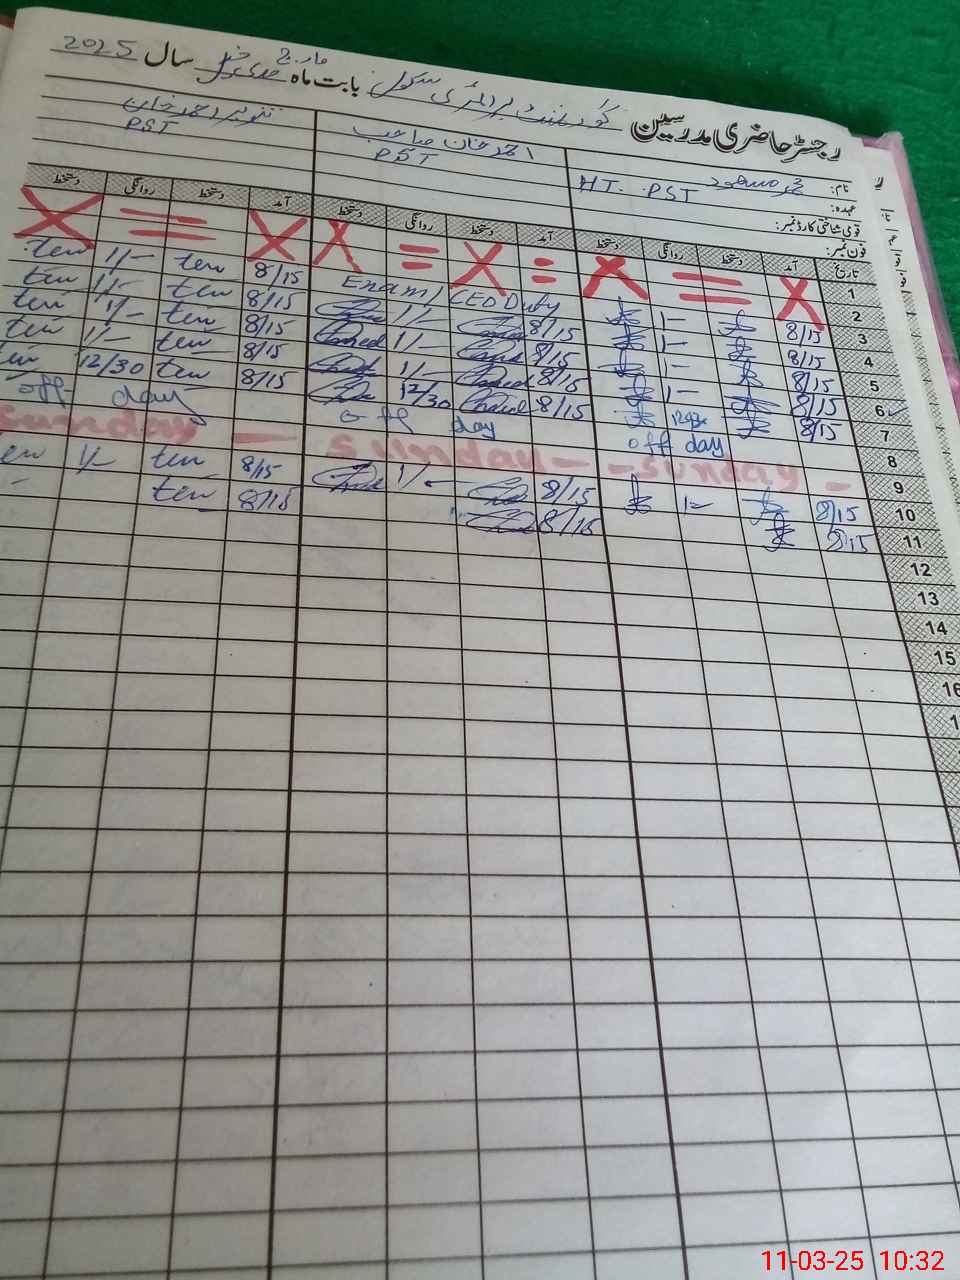 رجسٹر حاضری مدرسین گورنمنٹ پرائمری سکول بابت ماہ مارچ سال 2025
نام: محمد مسعود احمد خان صاحب تنویر احمد خان
عہدہ: HT. PST PST PST
قومی شناختی کارڈ نمبر:
فون نمبر:
تاریخ آمد دستخط روانگی دستخط آمد دستخط روانگی دستخط آمد دستخط روانگی دستخط
1 X = X = X X = X
2 8/15 1- Exam / CEO Duty 8/15 ten 1/- ten
3 8/15 1- 8/15 1/- 8/15 ten 1/- ten
4 8/15 1- 8/15 1/- 8/15 ten 1/- ten
5 8/15 1- 8/15 1/- 8/15 ten 1/- ten
6 8/15 8/15 12/30 8/15 ten 12/30 ten
7 off day off day off day
8 Sunday Sunday Sunday
9 8/15 1- 8/15 1/- 8/15 ten 1/- ten
10 8/15 8/15 8/15 ten
11
12
13
14
15
16
11-03-25 10:32